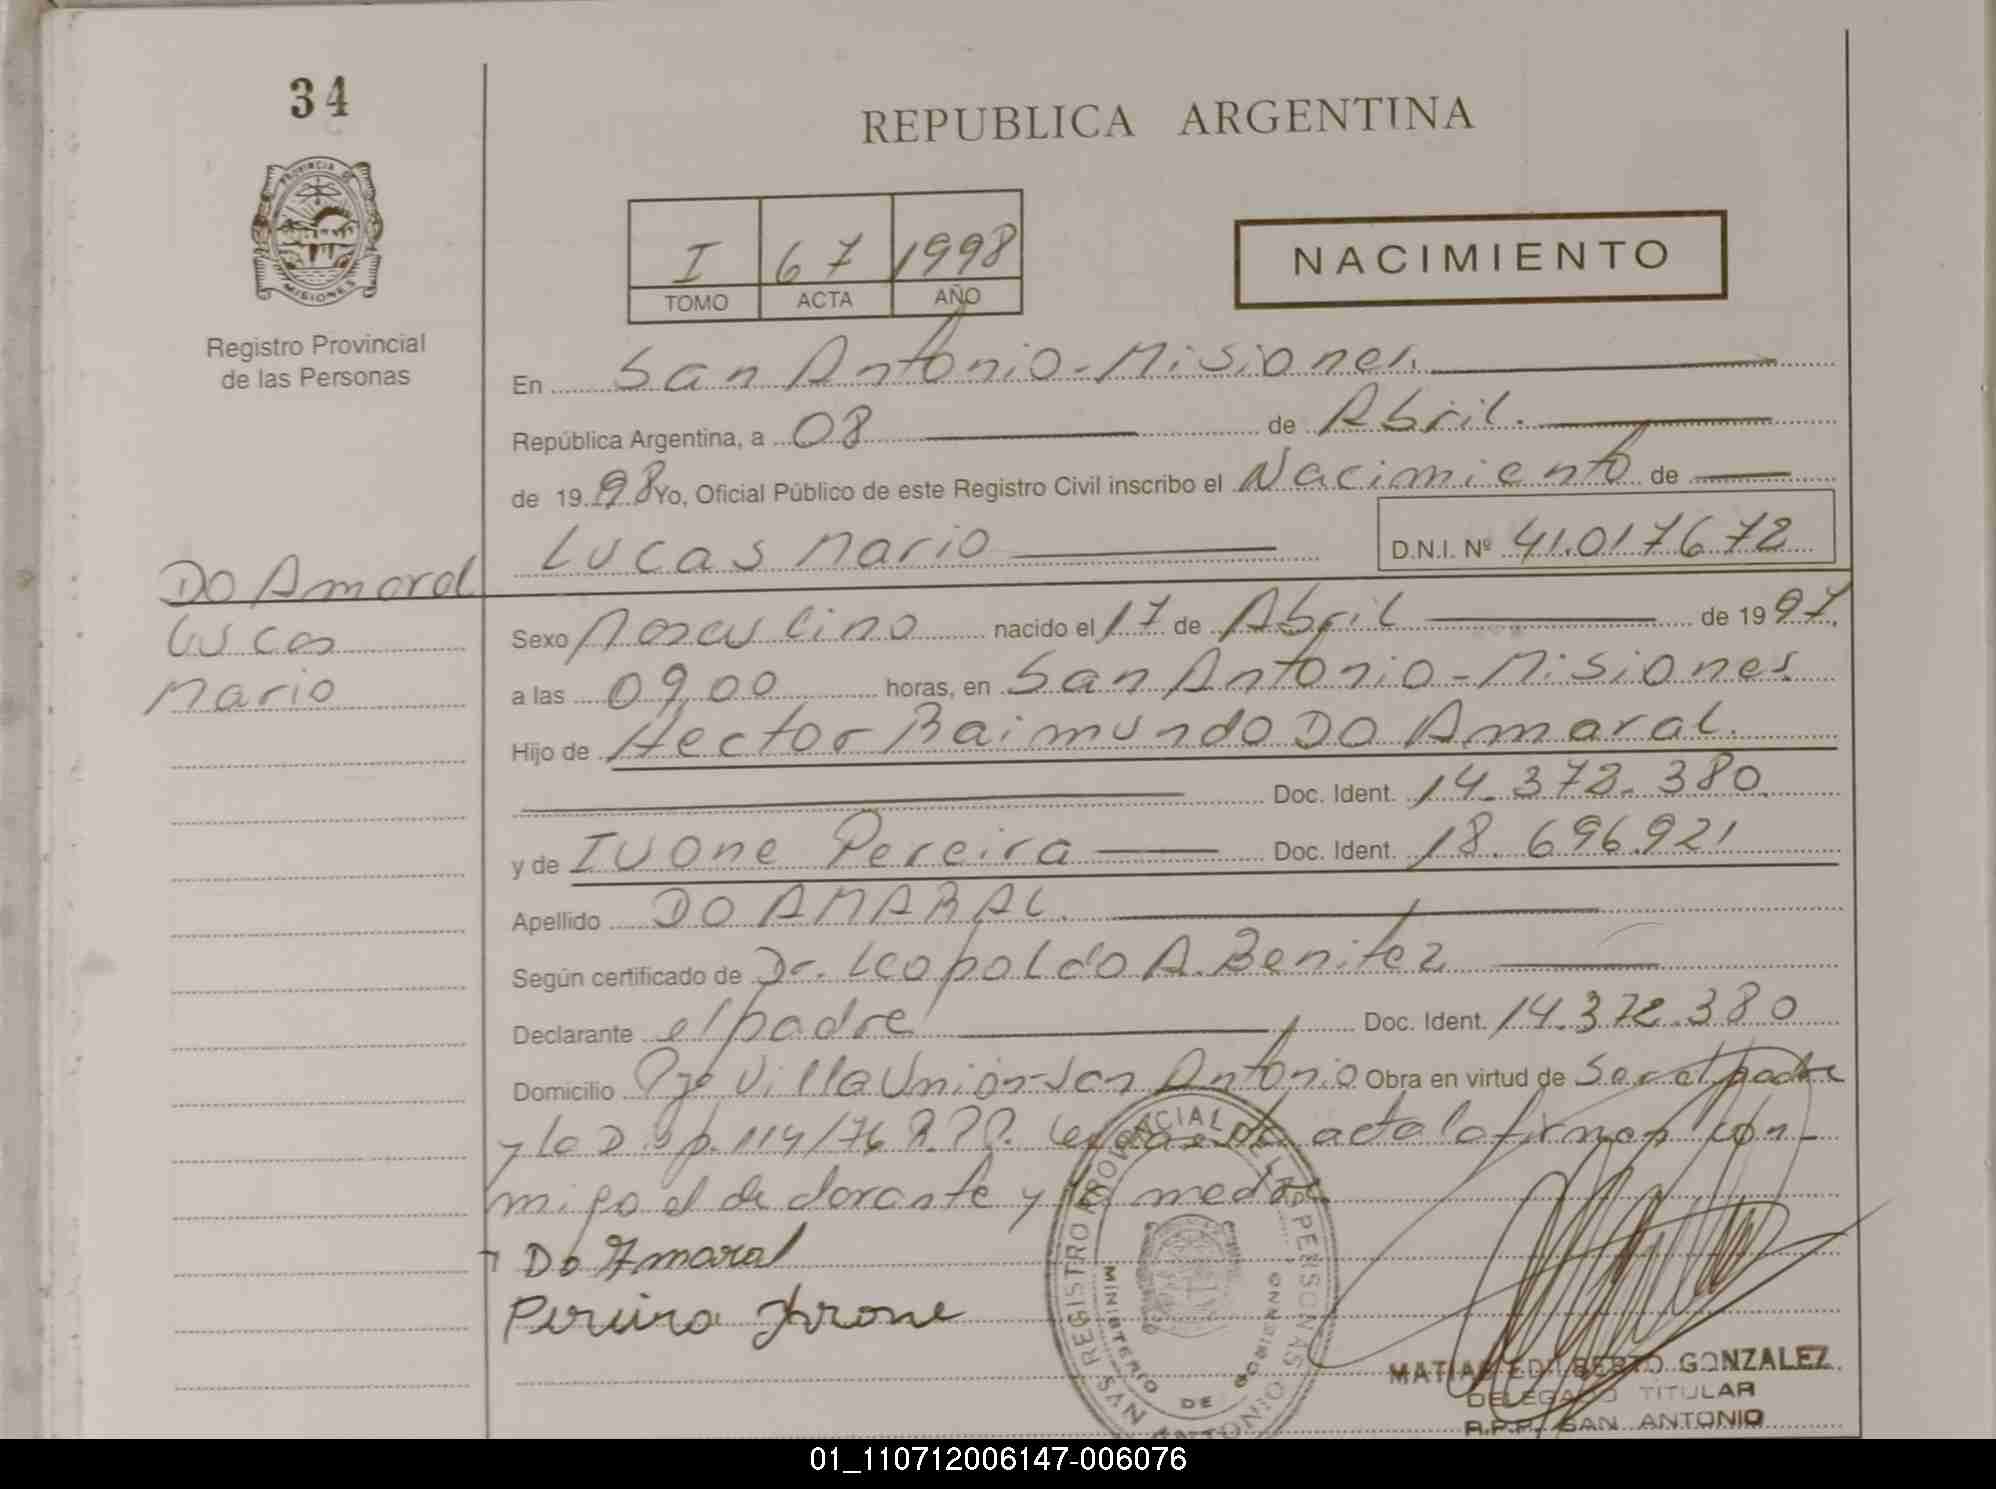 34
REPUBLICA ARGENTINA
PROVINCIA DE
MISIONES
Registro Provincial
de las Personas
I 67 1998
TOMO ACTA AÑO
NACIMIENTO
En San Antonio-Misiones.
República Argentina, a 08 de Abril.
de 1998 Yo, Oficial Público de este Registro Civil inscribo el Nacimiento de
Lucas Mario D.N.I. Nº 41.017672
DO Amaral
Lucas
Mario
Sexo Masculino nacido el 17 de Abril de 1997,
a las 09,00 horas, en San Antonio-Misiones.
Hijo de Hector Raimundo DO Amaral.
Doc. Ident. 14.372.380.
y de Ivone Pereira Doc. Ident. 18.696.921
Apellido DO AMARAL.
Según certificado de Dr. Leopoldo A. Benitez
Declarante el padre Doc. Ident. 14.372.380
Domicilio Pje Villa Unión-San Antonio Obra en virtud de Ser el padre
y la Disp. 114/76 R.P.P. acta la firman con-
migo el declarante y la madre.
Do Amaral
Pereira Ivone
REGISTRO PROVINCIAL DE LAS PERSONAS
MINISTERIO DE GOBIERNO
SAN ANTONIO
MATIAS EDILBERTO GONZALEZ
DELEGADO TITULAR
R.P.P. SAN ANTONIO
01_110712006147-006076